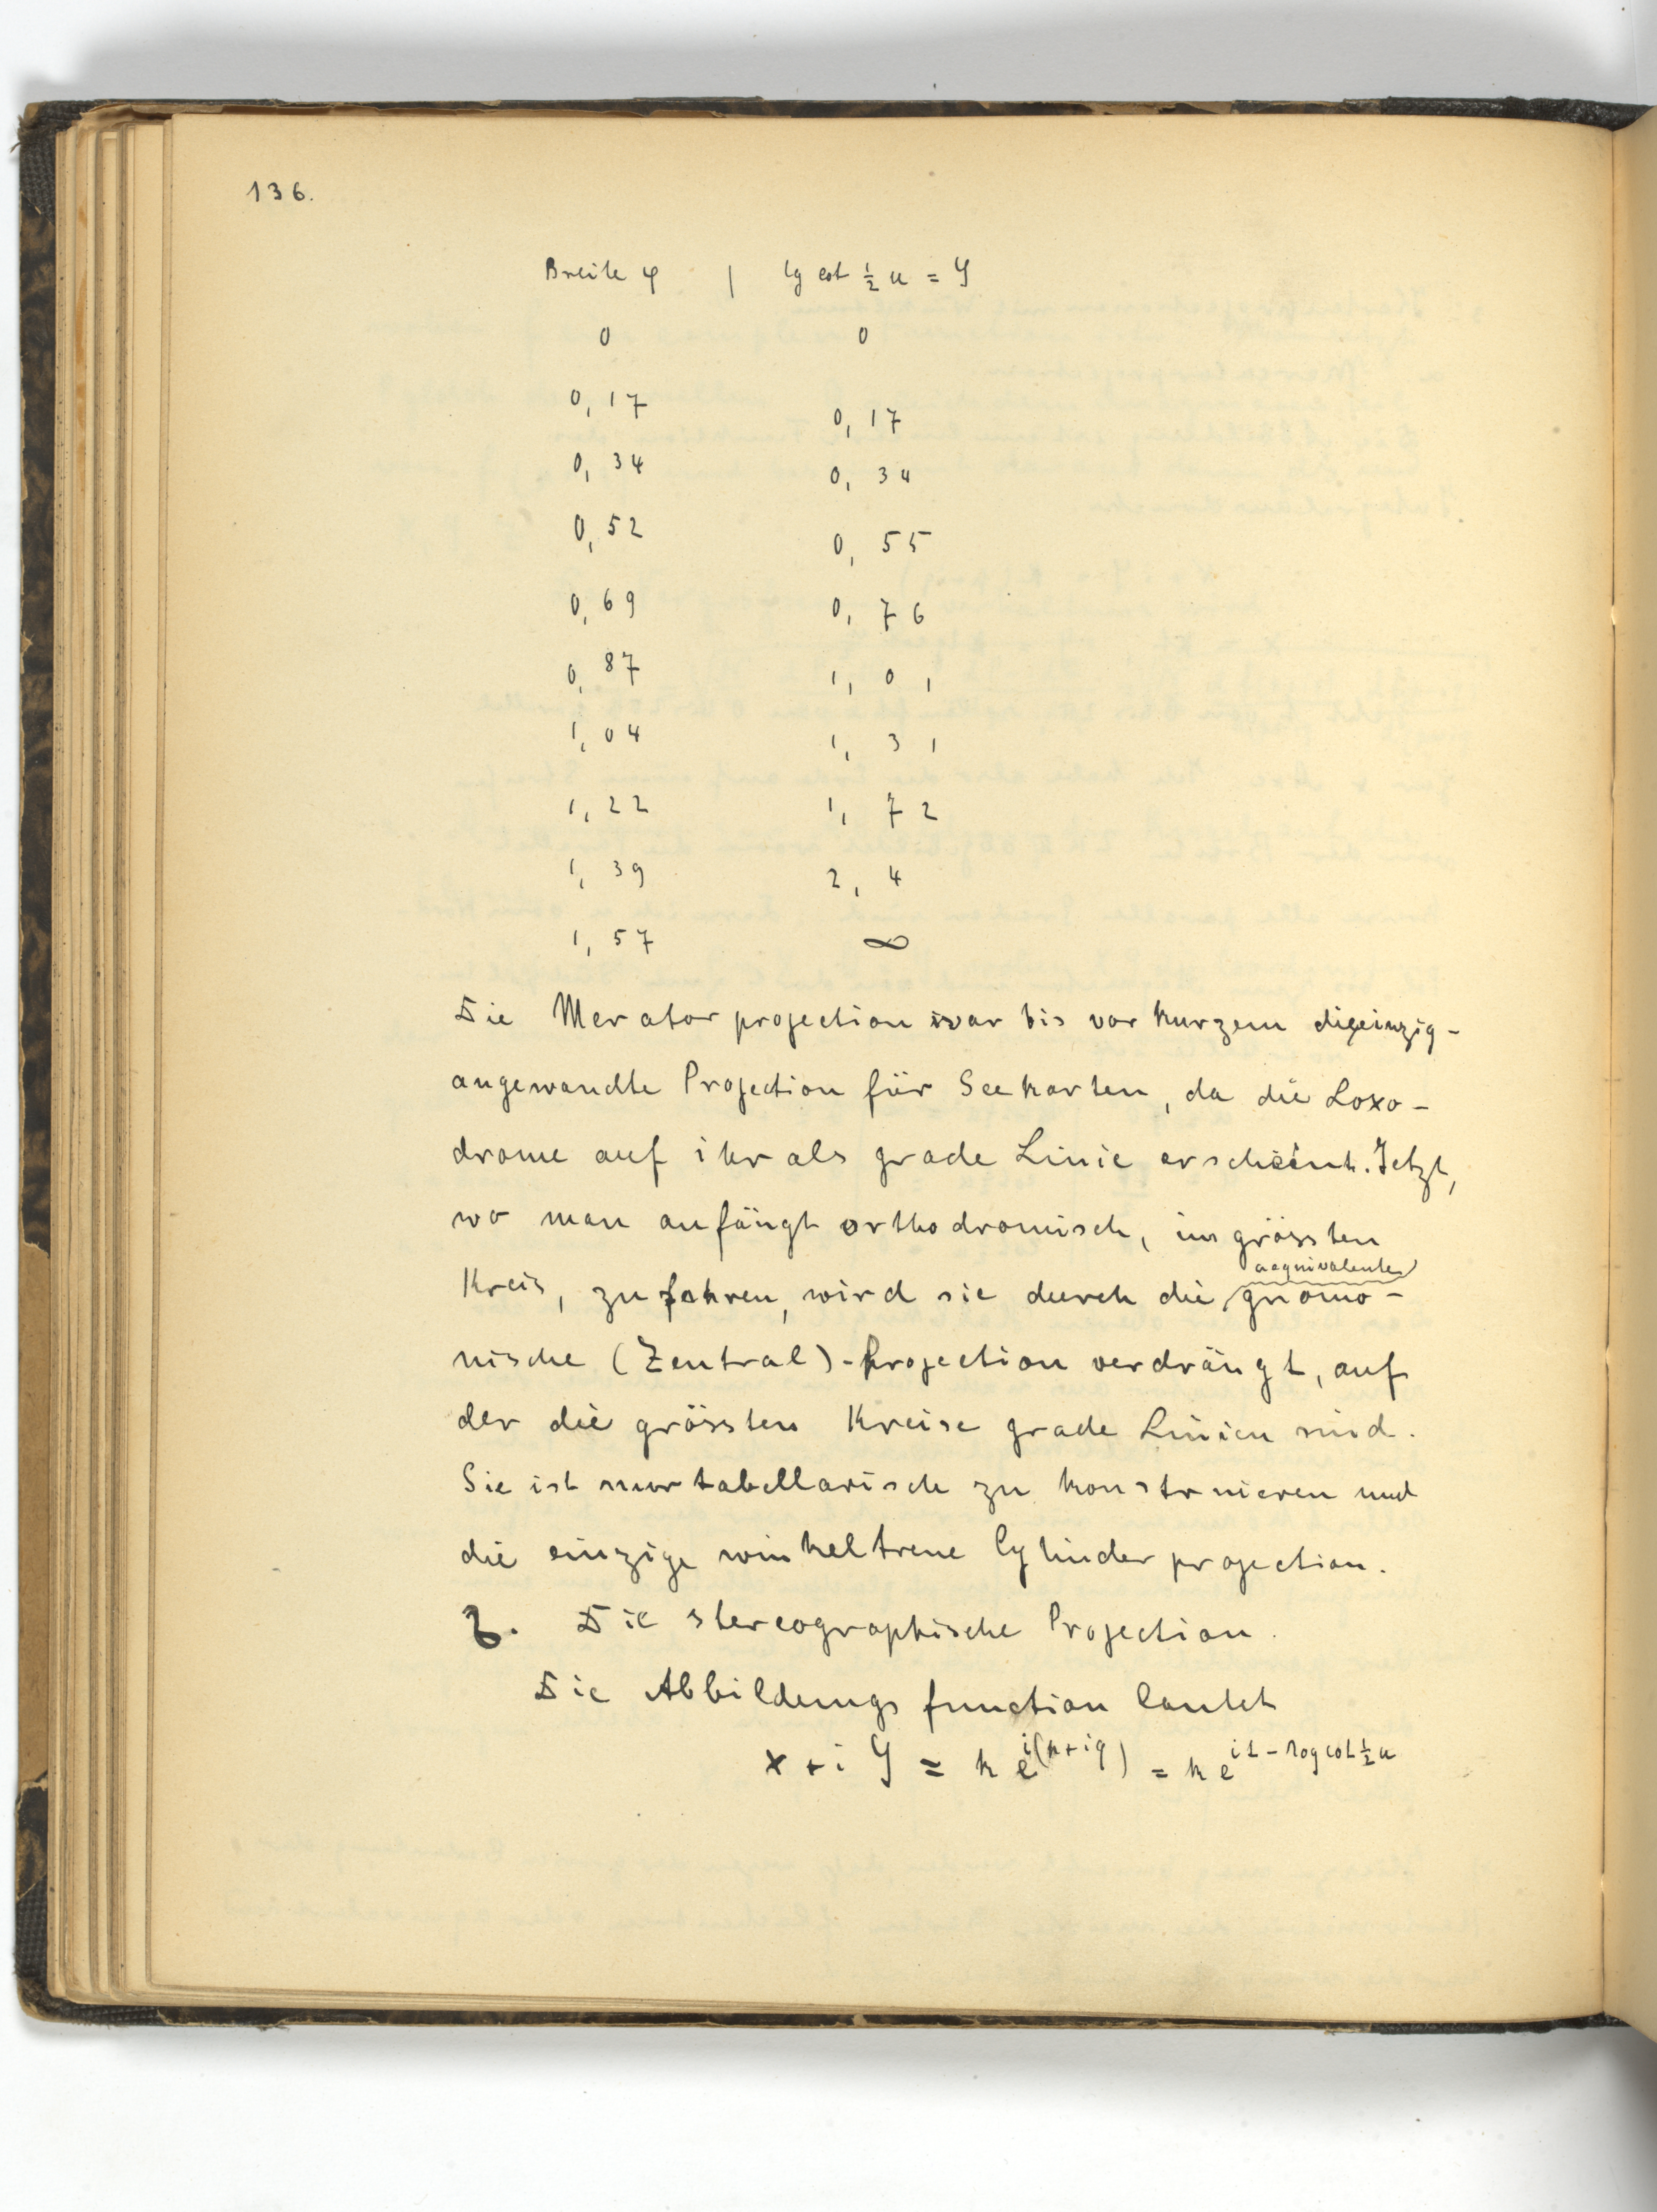 136.
Breite φ | lg cot ½ u = y
0 0
0,17 0,17
0,34 0,34
0,52 0,55
0,69 0,76
0,87 1,01
1,04 1,31
1,22 1,72
1,39 2,4
1,57 ∞
Die Mercatorprojection war bis vor kurzem die einzig-
angewandte Projection für Seekarten, da die Loxo-
drome auf ihr als grade Linie erscheint. Jetzt,
wo man anfängt orthodromisch, im grössten
aequivalente
Kreis, zu fahren, wird sie durch die gnomo-
nische (Zentral)-Projection verdrängt, auf
der die grössten Kreise grade Linien sind.
Sie ist nur tabellarisch zu konstruieren und
die einzige winkeltreue Cylinderprojection.
b. Die stereographische Projection.
Die Abbildungsfunction lautet
x + i y = k e^{i(p+iq)} = k e^{it - log cot ½ u}